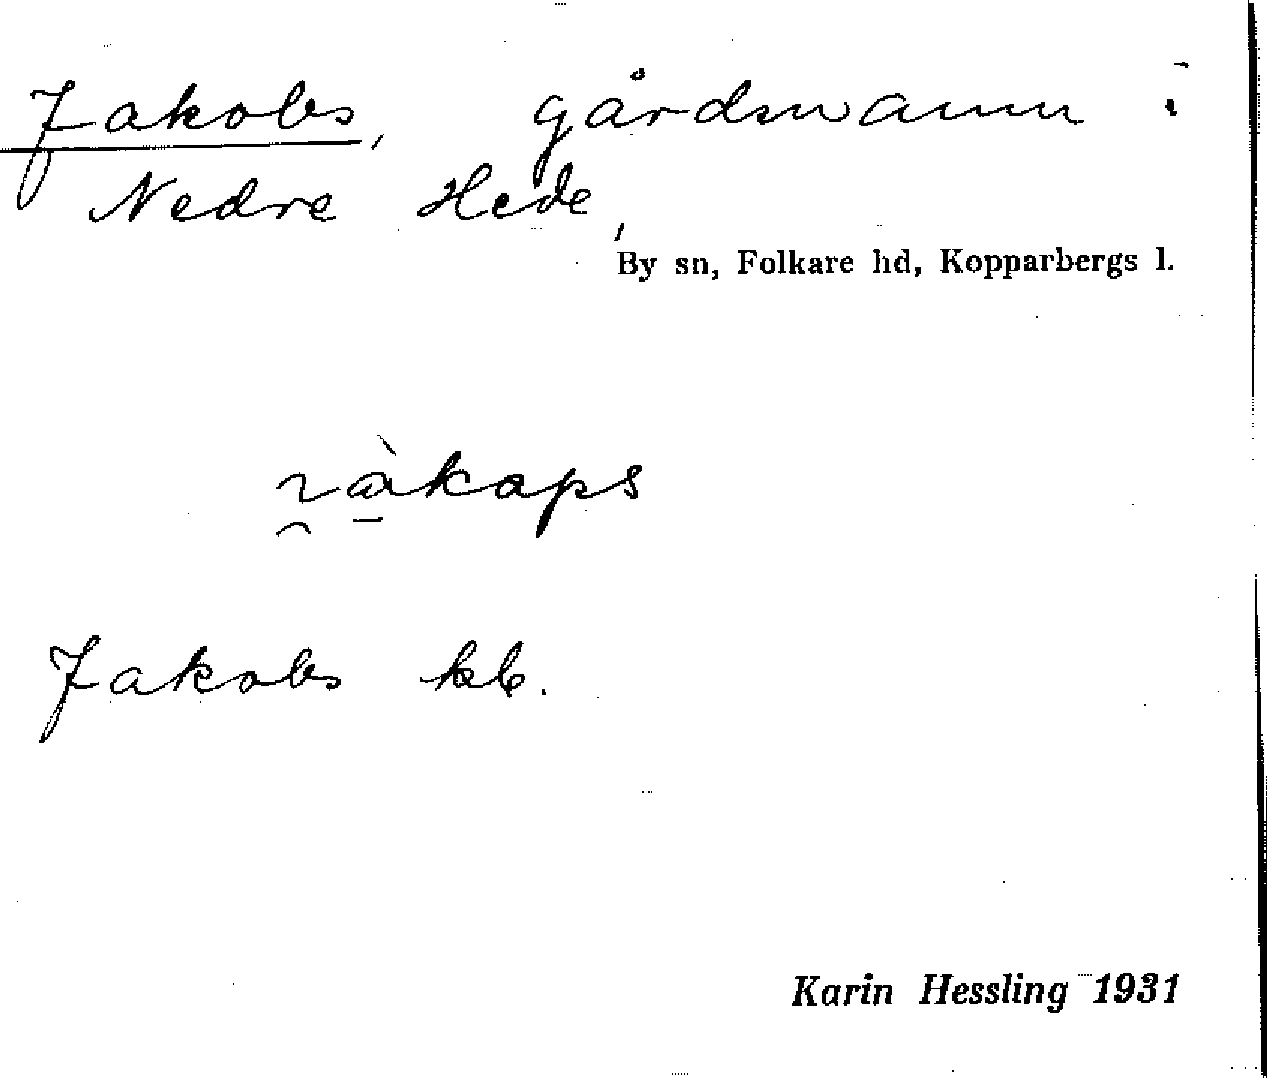 Jakobs, gårdsnamn i
Nedre Hede,
By sn, Folkare hd, Kopparbergs l.
Jakobs kb.
Karin Hessling 1931